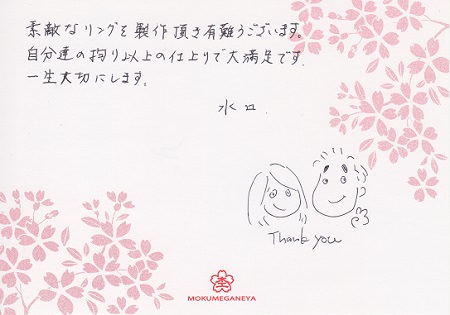 素敵なリングを製作頂き有難うございます。
自分達の拘り以上の仕上りで大満足です。
一生大切にします。
水口
Thank you
MOKUMEGANEYA